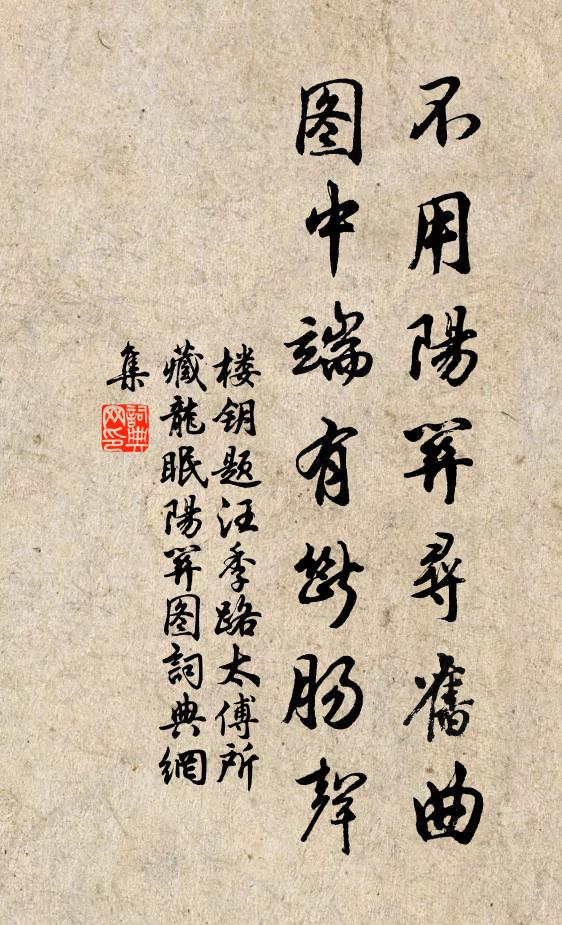 不用陽関尋舊曲
图中端有斷肠聲
楼钥题汪季路太傅所
藏龍眠陽関图詞典網
集
詞典
网印